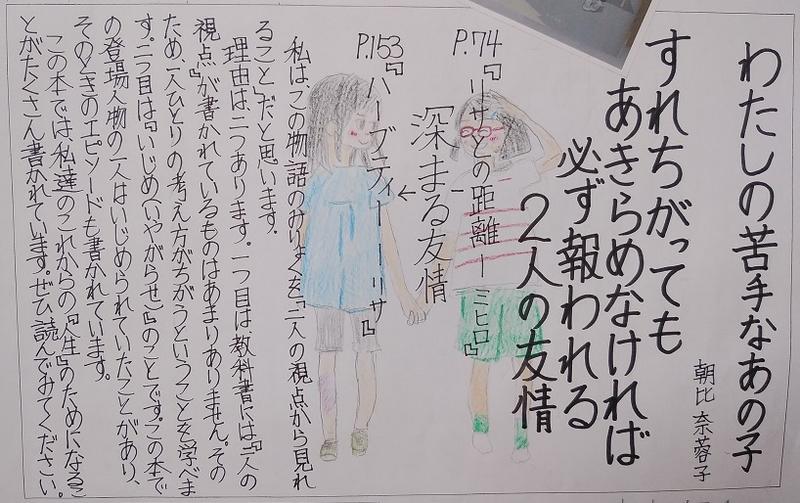 わたしの苦手なあの子
朝比 奈蓉子
すれちがっても
あきらめなければ
必ず報われる
2人の友情
P.74『リサとの距離ーミヒロ』
深まる友情
P.153『ハーブティーーリサ』
私はこの物語のみりょくを『二人の視点から見れ
ること』だと思います。
理由は、二つあります。一つ目は、教科書には『二人の
視点』が書かれているものはあまりありません。その
ため、一人ひとりの考え方がちがうということを学べま
す。二つ目は『いじめ(いやがらせ)』のことです。この本で
の登場人物の一人はいじめられていたことがあり、
そのときのエピソードも書かれています。
この本では私達のこれからの『人生』のためになるこ
とがたくさん書かれています。ぜひ読んでみてください。